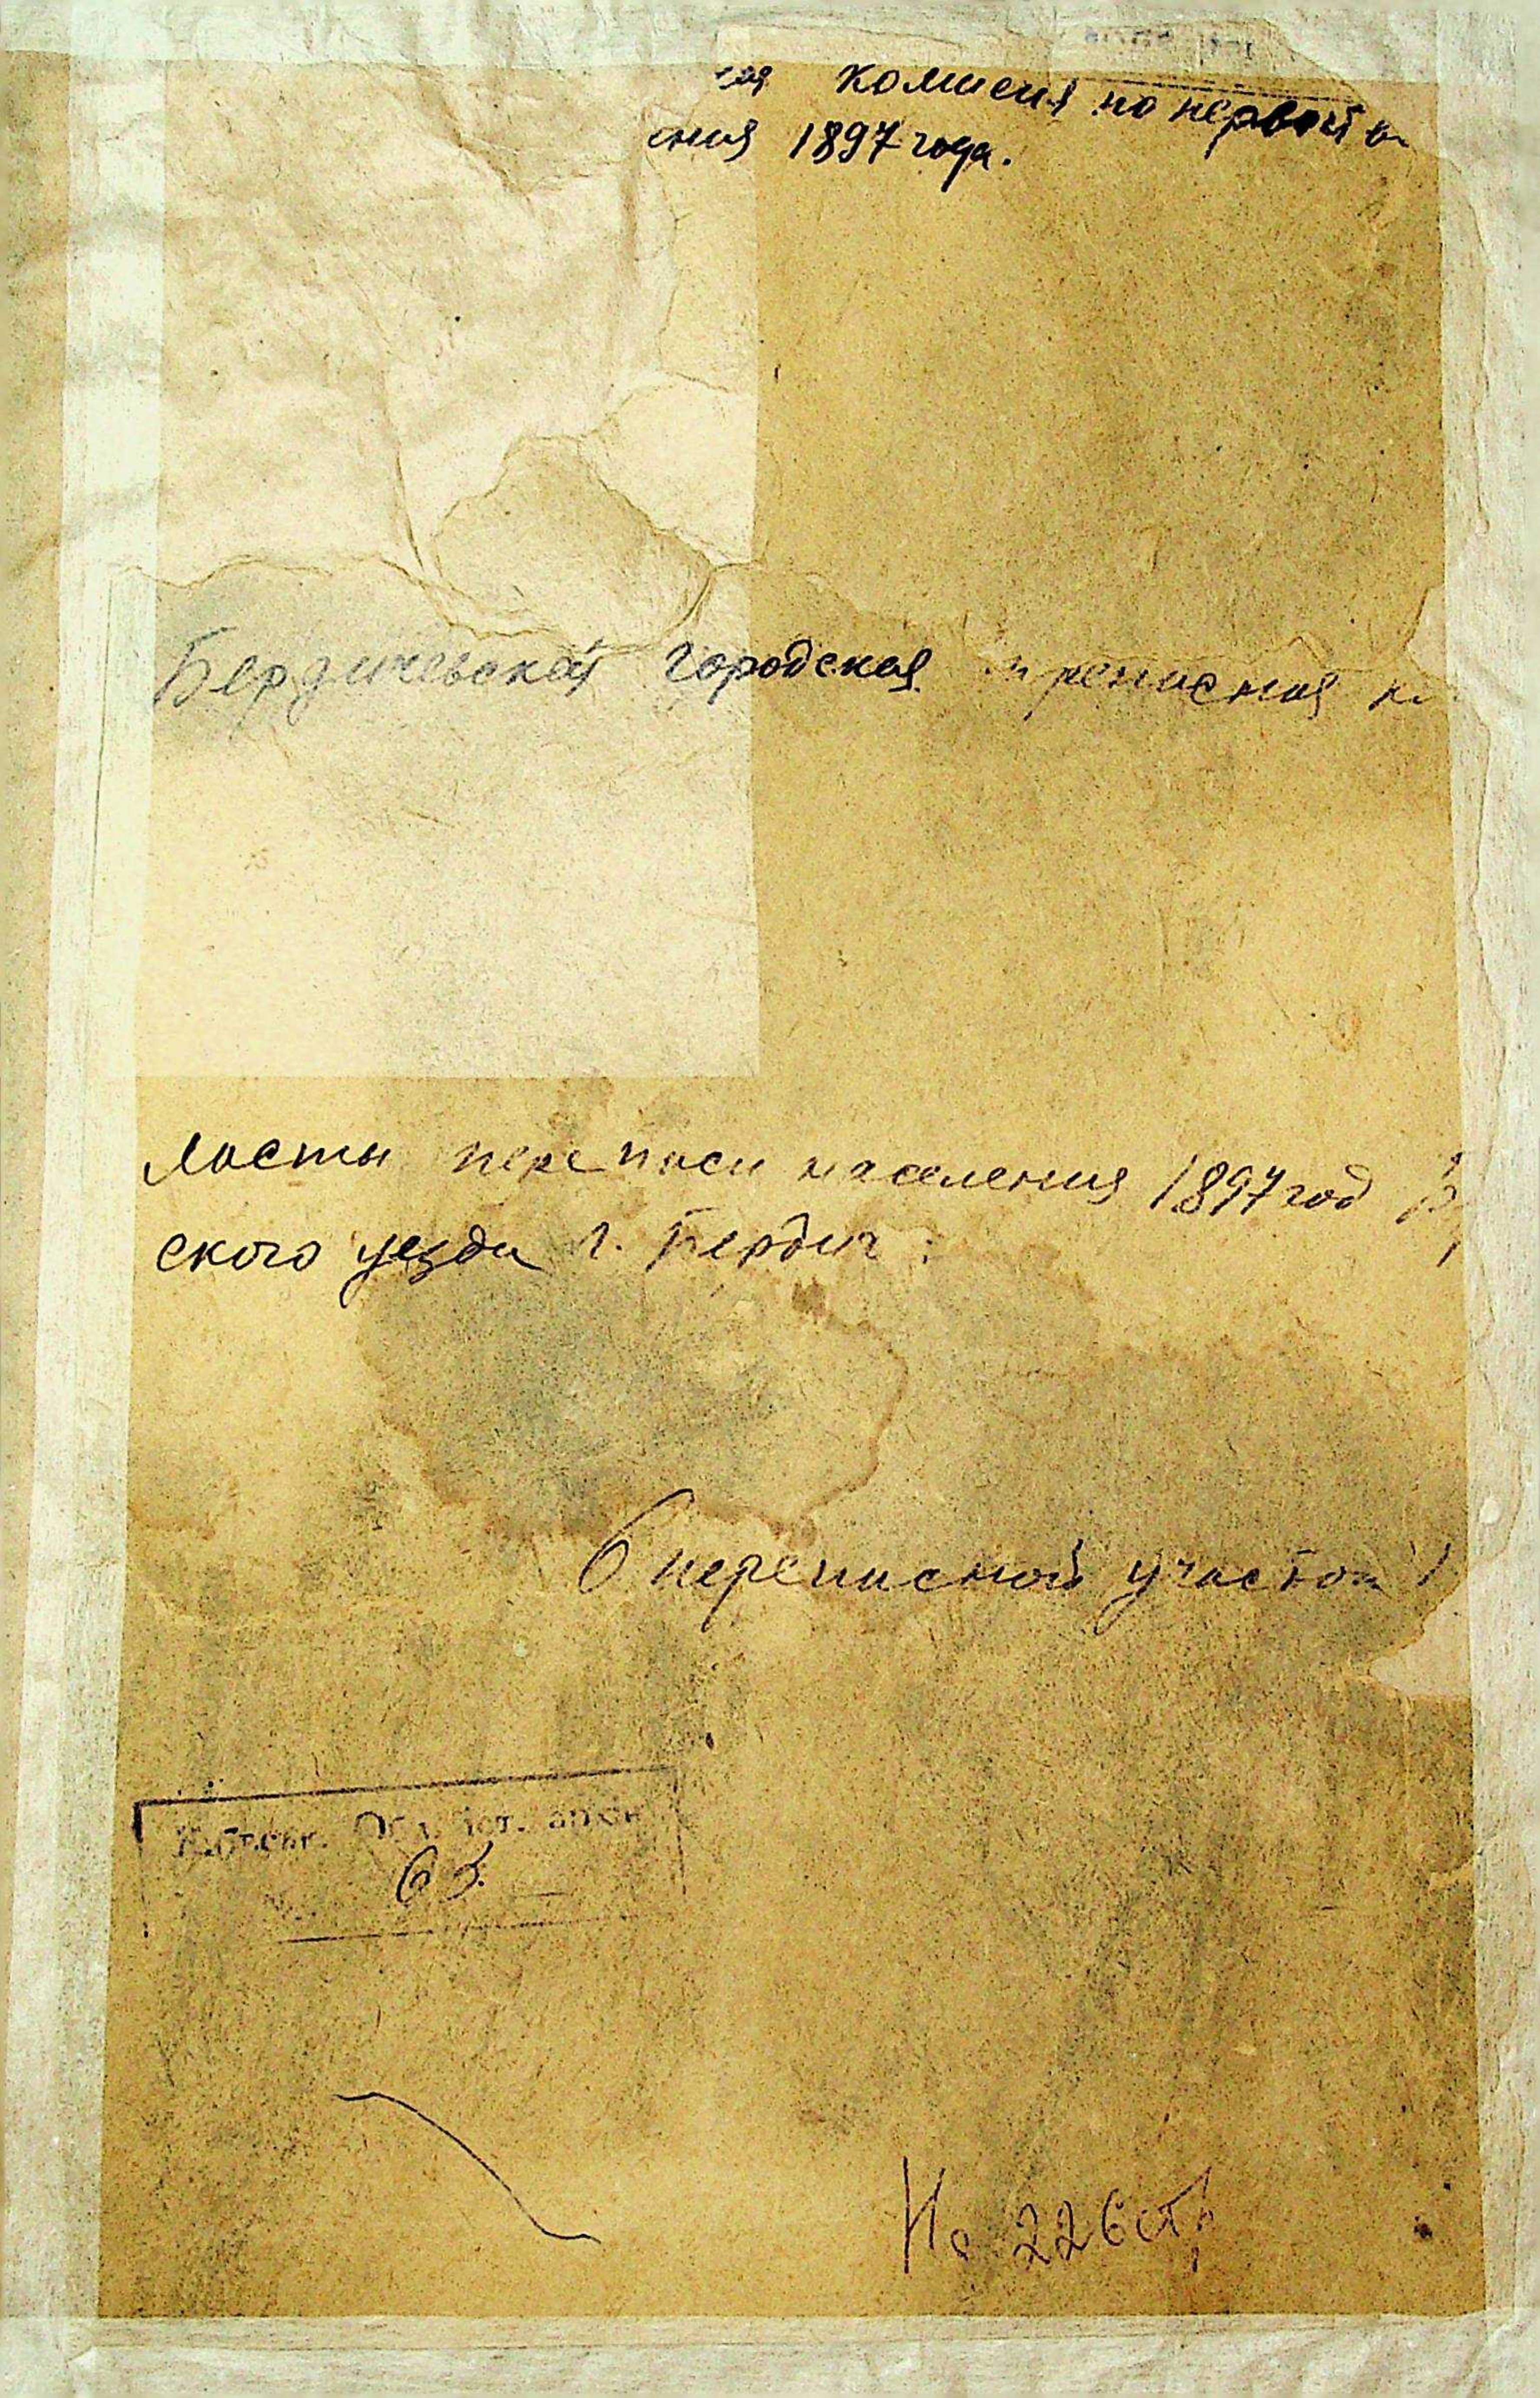 комисия по первой
ения 1897 года.
Бердичевская городская переписная к
Листы переписи населения 1897 год
ского уезда г. Бердич
6 переписной участок
ист. архив
65.
На 226 ст